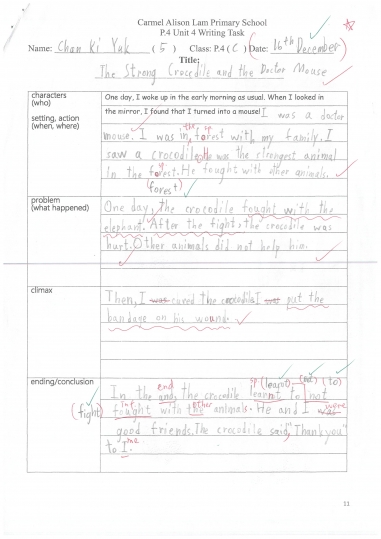 Carmel Alison Lam Primary School
P.4 Unit 4 Writing Task
Name: Chan Ki Yuk ( 5 ) Class: P.4 ( C ) (Date: 16th December)
Title:
The Strong Crocodile and the Doctor Mouse
characters
(who)
setting, action
(when, where)
One day, I woke up in the early morning as usual. When I looked in
the mirror, I found that I turned into a mouse! I was a doctor
mouse. I was in the forest with my family. I
sp
saw a crocodile. He was the strongest animal
in the forest. He fought with other animals.
(forest)
problem
(what happened)
One day, the crocodile fought with the
elephant. After the fight, the crocodile was
hurt. Other animals did not help him.
climax
Then, I was cured the crocodile. I was put the
bandage on his wound.
ending/conclusion
end sp (learnt) (not) (to)
In the and, the crocodile learnt to not
(fight) inf. other
fought with the animals. He and I was were
good friends. The crocodile said, "Thank you"
to I. me
11